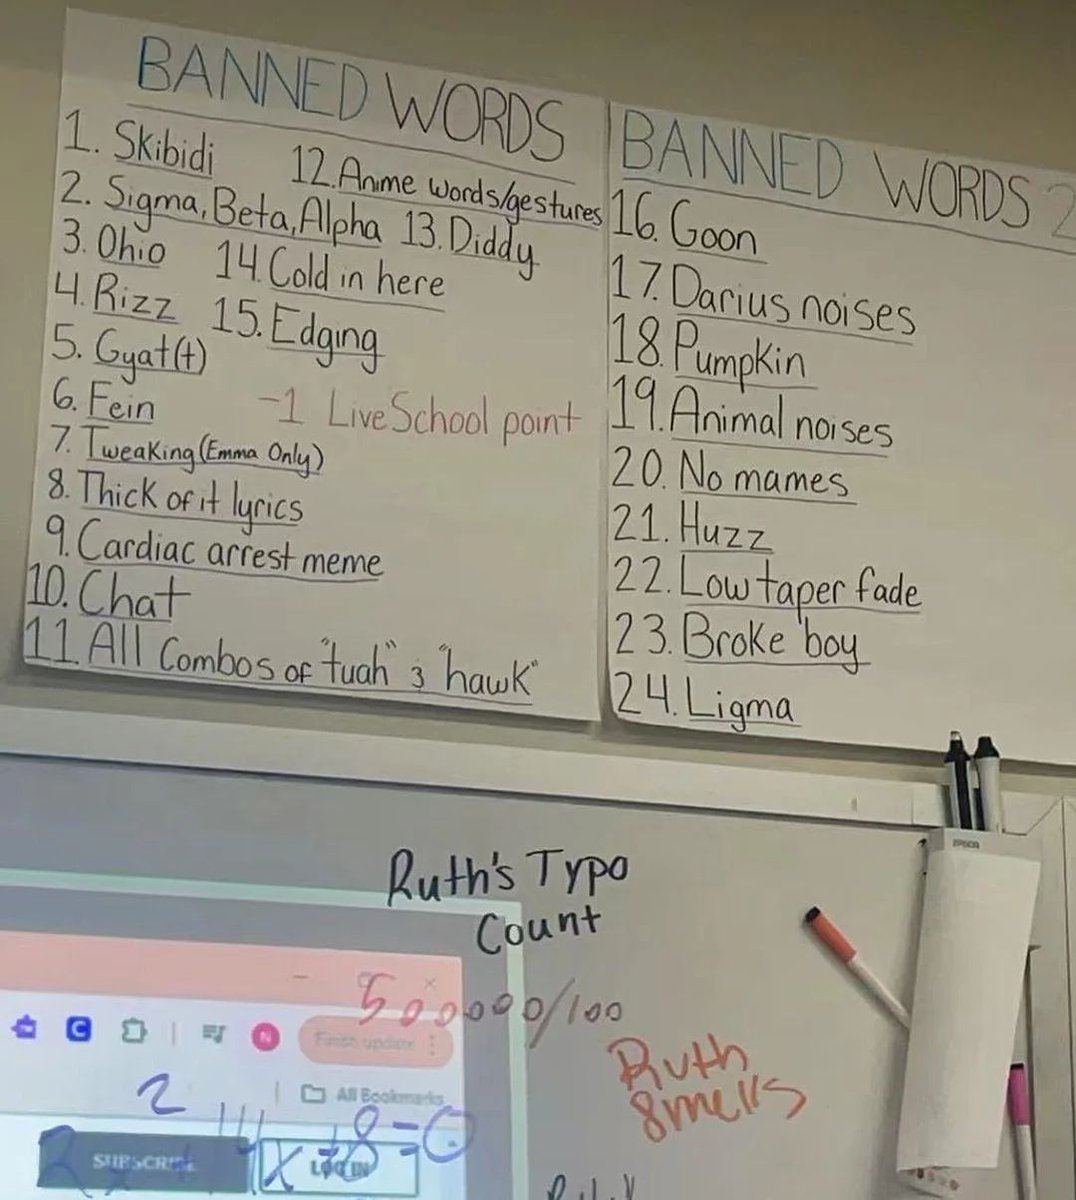 BANNED WORDS
1. Skibidi
2. Sigma, Beta, Alpha
3. Ohio
4. Rizz
5. Gyat(t)
6. Fein
7. Tweaking (Emma Only)
8. Thick of it lyrics
9. Cardiac arrest meme
10. Chat
11. All Combos of "tuah" & "hawk"
12. Anime words/gestures
13. Diddy
14. Cold in here
15. Edging
-1 LiveSchool point
BANNED WORDS 2
16. Goon
17. Darius noises
18. Pumpkin
19. Animal noises
20. No mames
21. Huzz
22. Low taper fade
23. Broke boy
24. Ligma
EPSON
Ruth's Typo
Count
500000/100
Ruth
Smells
Finish update
All Bookmarks
SUBSCRIBE
LOG IN